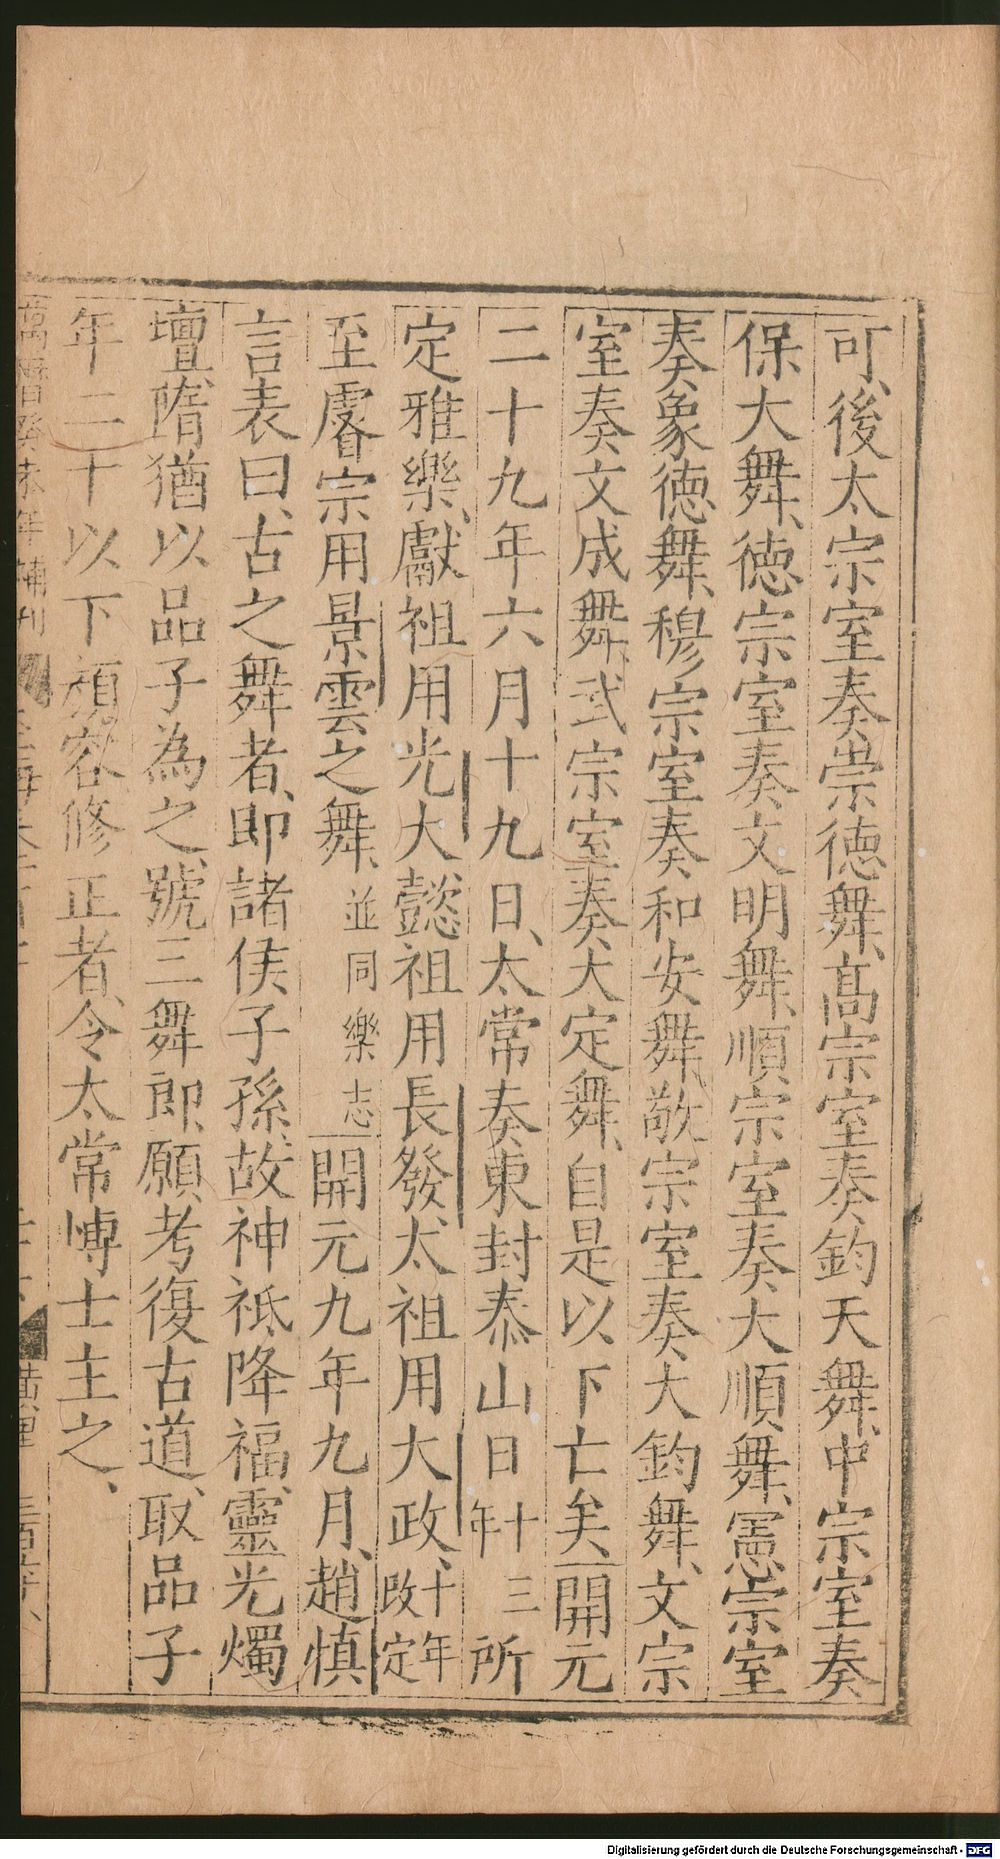 可、後太宗室奏崇德舞、髙宗室奏鈞天舞、中宗室奏
保大舞、德宗室奏文明舞、順宗室奏大順舞、憲宗室
奏象德舞、穆宗室奏和安舞、敬宗室奏大鈞舞、文宗
室奏文成舞、武宗室奏大定舞、自是以下亡矣開元
二十九年六月十九日、太常奏東封泰山日十三年所
定雅樂、獻祖用光大懿祖用長發、太祖用大政、十年改定
至睿宗用景雲之舞、並同樂志開元九年九月、趙慎
言表曰、古之舞者、即諸侯子孫、故神祇降福、靈光燭
壇、隋猶以品子為之、號三舞郎、願考復古道、取品子
年二十以下顔容修正者、令太常博士主之、
萬曆癸未年補刊
Digitalisierung gefördert durch die Deutsche Forschungsgemeinschaft - DFG